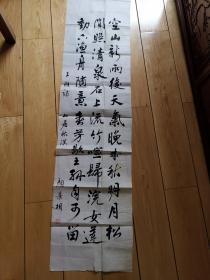 空山新雨後天氣晚来秋明月松
間照清泉石上流竹喧歸浣女蓮
動下漁舟随意春芳歇王孫自可留
王維詩 山居秋暝